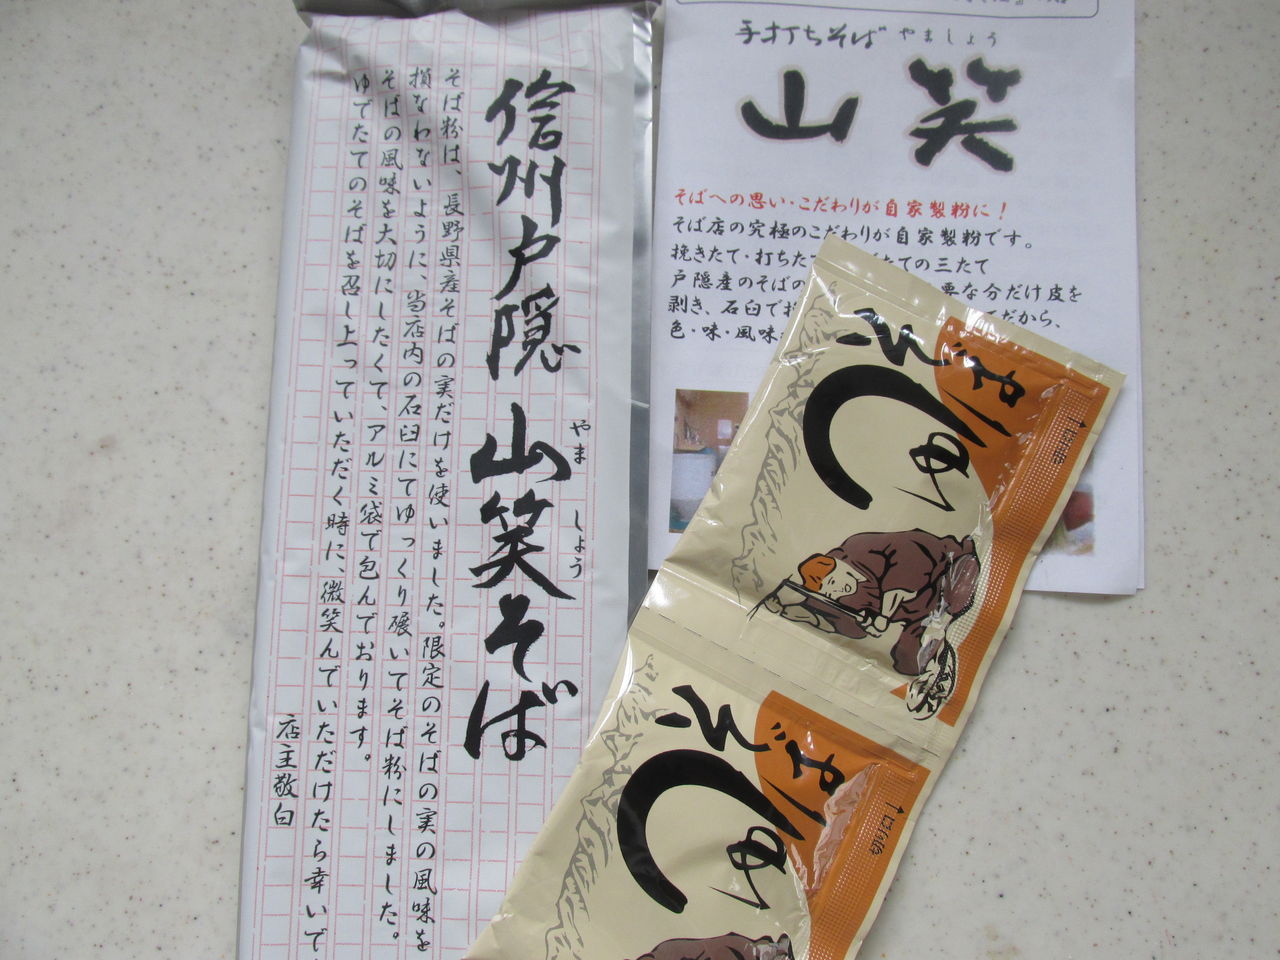 信州戸隠 山笑そば
やま しょう
そば粉は、長野県産そばの実だけを使いました。限定のそばの実の風味を
損なわないように、当店内の石臼にてゆっくり碾いてそば粉にしました。
そばの風味を大切にしたくて、アルミ袋で包んでおります。
ゆでたてのそばを召し上っていただく時に、微笑んでいただけたら幸いで
店主敬白
手打ちそば やましょう
山笑
そばへの思い・こだわりが自家製粉に！
そば店の究極のこだわりが自家製粉です。
挽きたて・打ちた たての三たて
戸隠産のそばの 要な分だけ皮を
剥き、石臼で だから、
色・味・風味
そばつゆ
切り口
そばつゆ
切り口